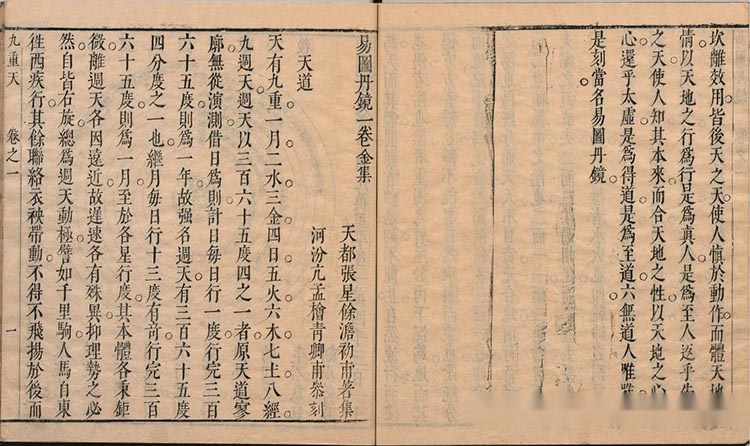 坎離效用皆後天之天使人慎於動作而體天地
情以天地之行為行是為真人是為至人逐乎先
之天使人知其本來而合天地之性以天地之心
心還乎太虛是為得道是為至道六無道人唯
是刻當名易圖丹鏡
易圖丹鏡一卷金集
天都張星餘澹初甫著集
河汾亢孟檜青卿甫叅刻
天道
天有九重一月二水三金四日五火六木七土八經
九週天週天以三百六十五度四之一者原天道寥
廓無從演測借日為則計日每日行一度行完三百
六十五度則為一年故强名週天有三百六十五度
四分度之一也繼月每日行十三度有奇行完三百
六十五度則為一月至於各星行度其本體各秉鉅
微離週天各因遠近故遲速各有殊異抑理勢之必
然自皆右旋總為週天動極譬如千里駒人馬自東
徃西疾行其餘聯絡衣袂帶動不得不飛揚於後而
九重天 卷之一 一